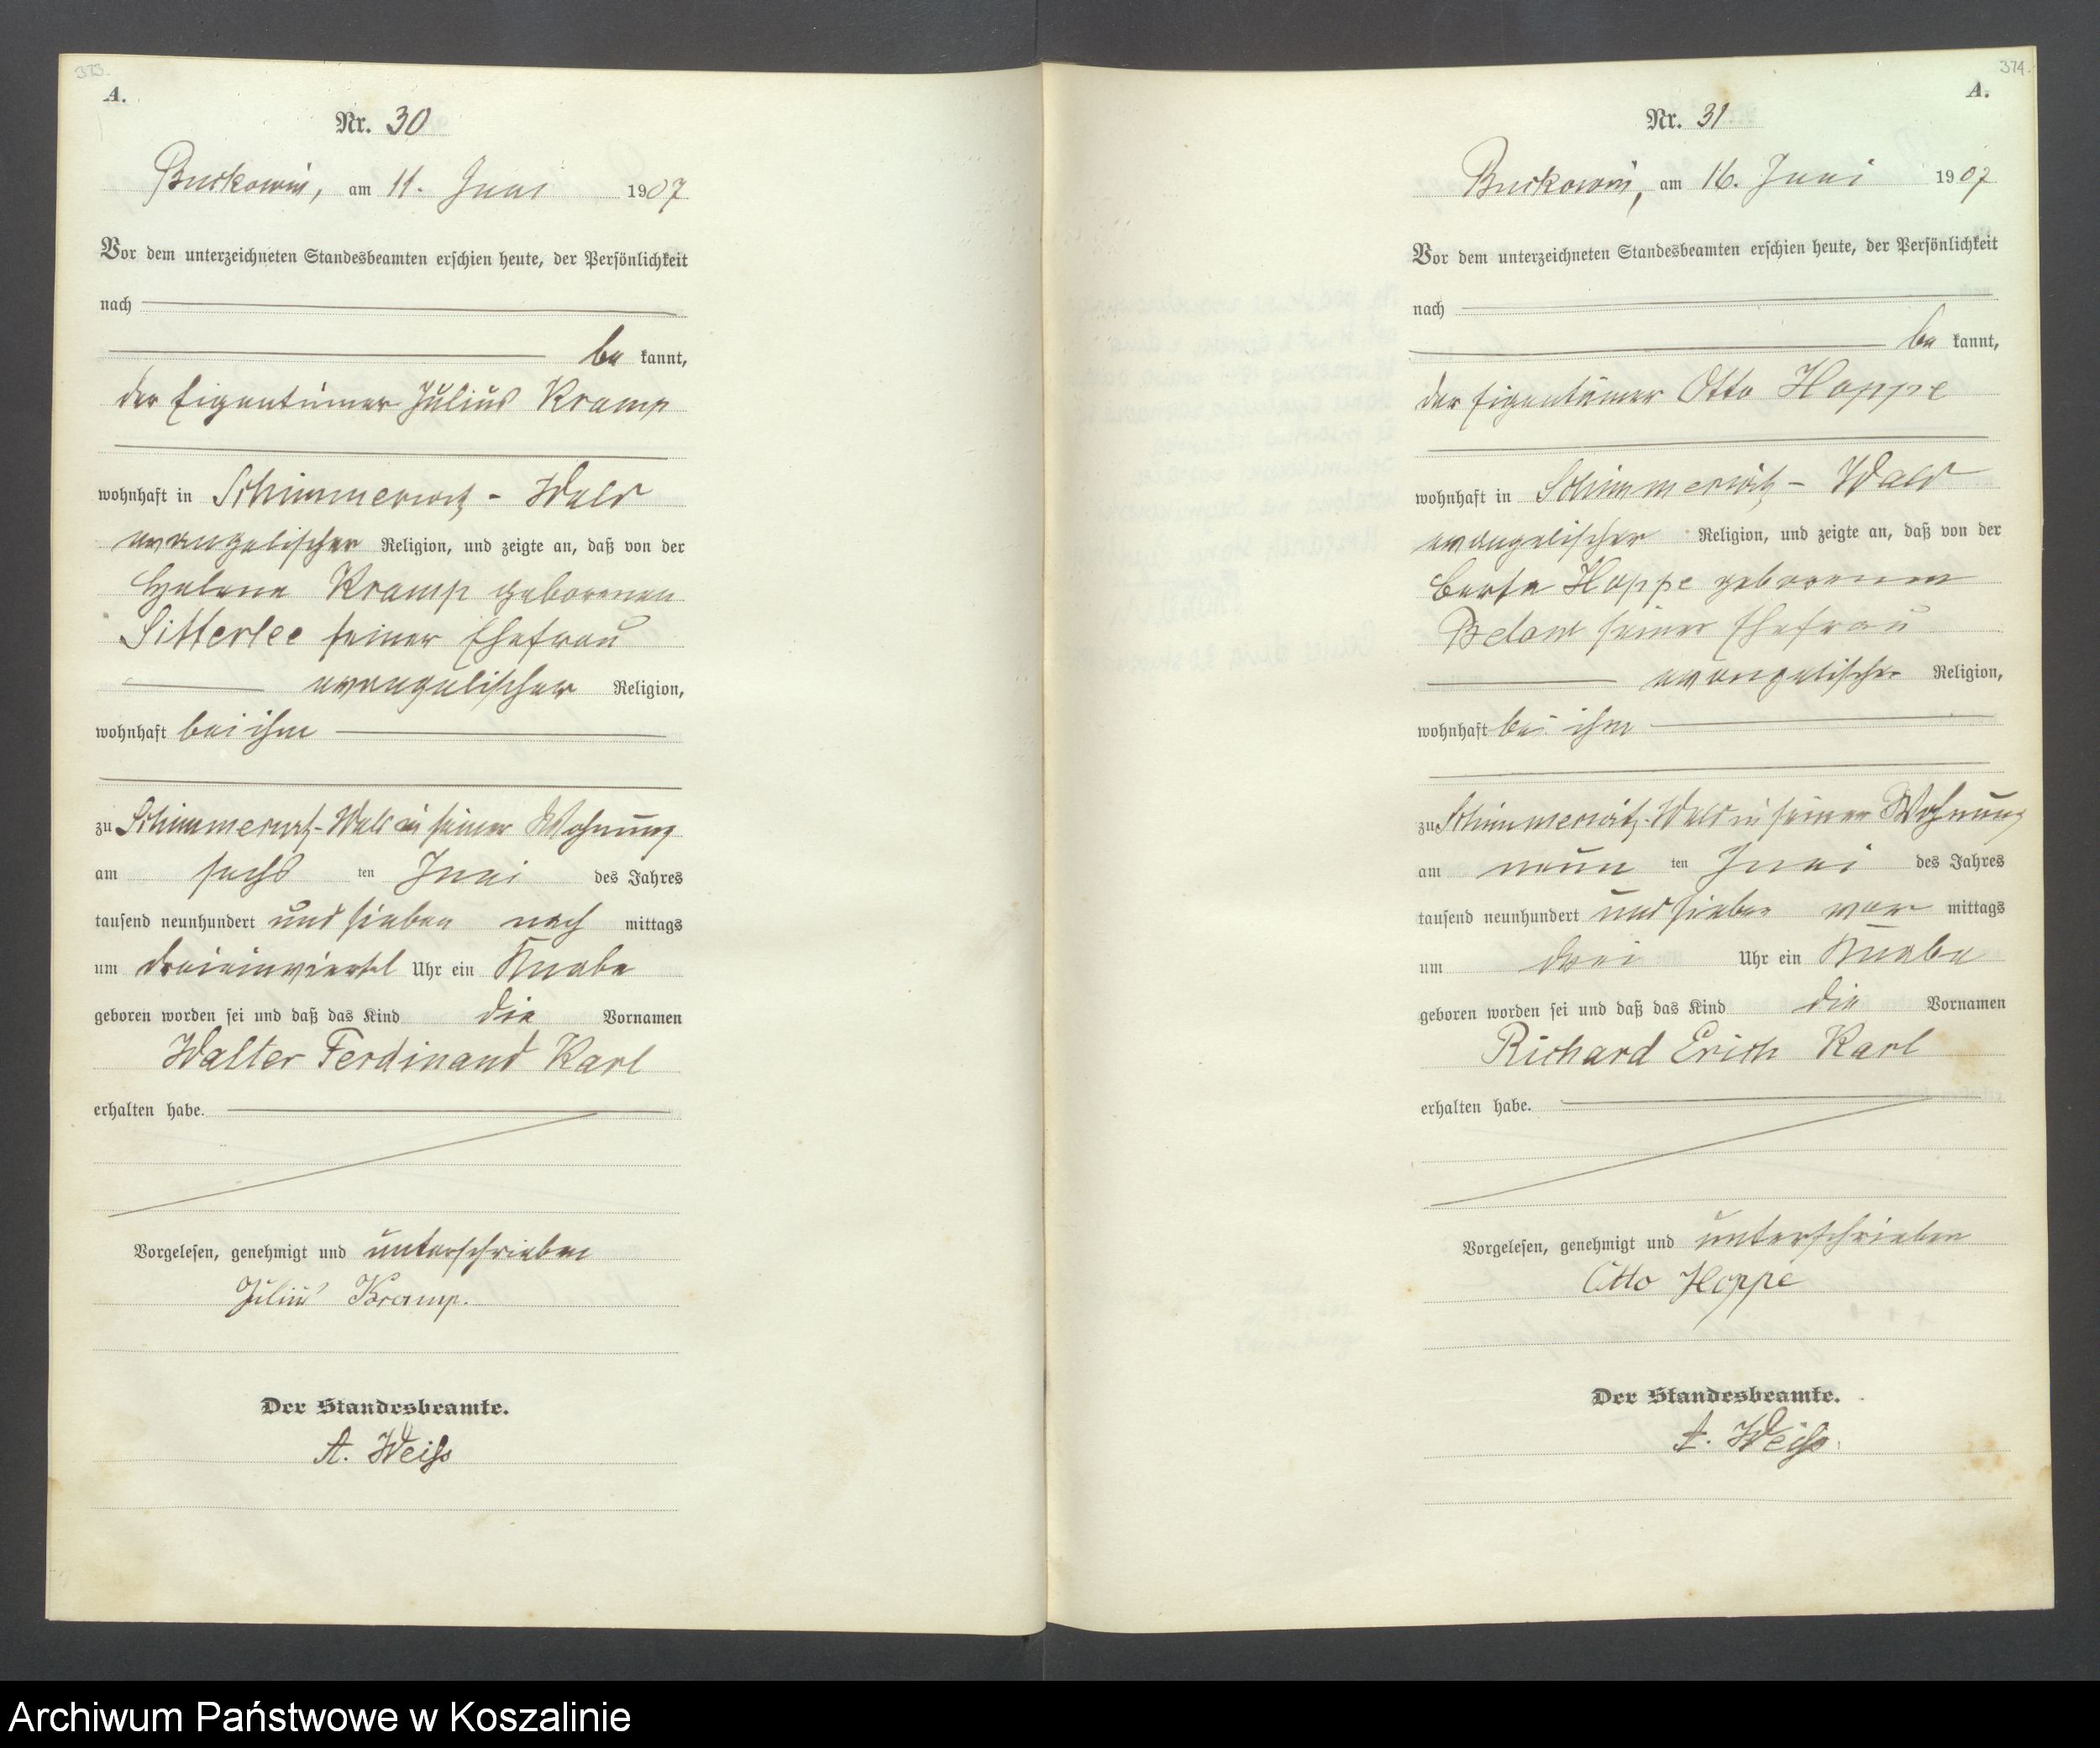 373.
A.
Nr. 30
Buckowin, am 11. Juni 1907
Vor dem unterzeichneten Standesbeamten erschien heute, der Persönlichkeit
nach
be kannt,
der Eigentümer Julius Kramp
wohnhaft in Schimmerwitz - Wald
evangelischer Religion, und zeigte an, daß von der
Helene Kramp geborenen
Sitterlee seiner Ehefrau
evangelischer Religion,
wohnhaft bei ihm
zu Schimmerwitz-Wald in seiner Wohnung
am sechs ten Juni des Jahres
tausend neunhundert und sieben nach mittags
um dreieinviertel Uhr ein Knabe
geboren worden sei und daß das Kind die Vornamen
Walter Ferdinand Karl
erhalten habe.
Vorgelesen, genehmigt und unterschrieben
Julius Kramp.
Der Standesbeamte.
A. Weiß
374.
A.
Nr. 31
Buckowin, am 16. Juni 1907
Vor dem unterzeichneten Standesbeamten erschien heute, der Persönlichkeit
nach
be kannt,
der Eigentümer Otto Hoppe
wohnhaft in Schimmerwitz - Wald
evangelischer Religion, und zeigte an, daß von der
Berta Hoppe geborenen
Below seiner Ehefrau
evangelischer Religion,
wohnhaft bei ihm
zu Schimmerwitz-Wald in seiner Wohnung
am neun ten Juni des Jahres
tausend neunhundert und sieben vor mittags
um drei Uhr ein Knabe
geboren worden sei und daß das Kind die Vornamen
Richard Erich Karl
erhalten habe.
Vorgelesen, genehmigt und unterschrieben
Otto Hoppe
Der Standesbeamte.
A. Weiß.
Archiwum Państwowe w Koszalinie